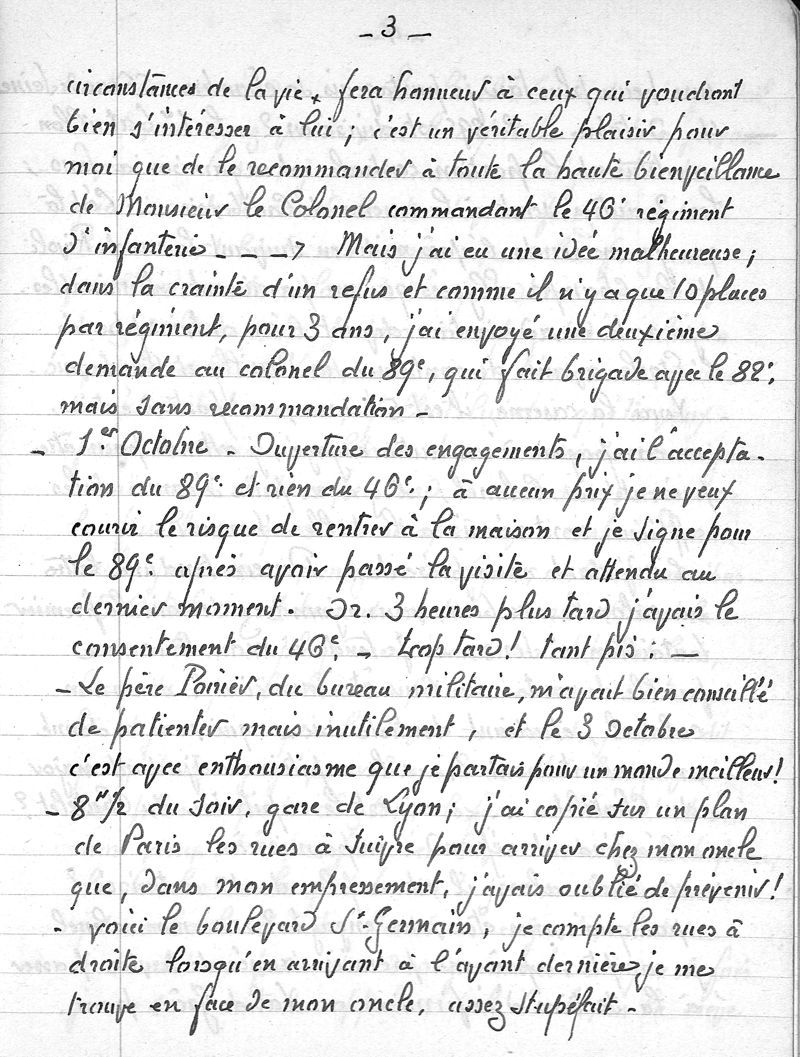 - 3 -
circonstances de la vie, fera honneur à ceux qui voudront
bien s'intéresser à lui ; c'est un véritable plaisir pour
moi que de le recommander à toute la haute bienveillance
de Monsieur le Colonel commandant le 46e régiment
d'infanterie _ _ _ > Mais j'ai eu une idée malheureuse ;
dans la crainte d'un refus et comme il n'y a que 10 places
par régiment, pour 3 ans, j'ai envoyé une deuxième
demande au colonel du 89e, qui fait brigade avec le 82e.
mais sans recommandation -
- 1.er Octobre - Ouverture des engagements, j'ai l'accepta-
tion du 89e et rien du 46e. ; à aucun prix je ne veux
courir le risque de rentrer à la maison et je signe pour
le 89e. après avoir passé la visite et attendu au
dernier moment. Or. 3 heures plus tard j'avais le
consentement du 46e. - trop tard ! tant pis : —
- Le père Poirier, du bureau militaire, m'avait bien conseillé
de patienter mais inutilement, et le 3 Octobre
c'est avec enthousiasme que je partais pour un monde meilleur !
- 8 h 1/2 du soir, gare de Lyon ; j'ai copié sur un plan
de Paris les rues à suivre pour arriver chez mon oncle
que, dans mon empressement, j'avais oublié de prévenir !
- voici le boulevard St-Germain, je compte les rues à
droite lorsqu'en arrivant à l'avant dernière je me
trouve en face de mon oncle, assez stupéfait -